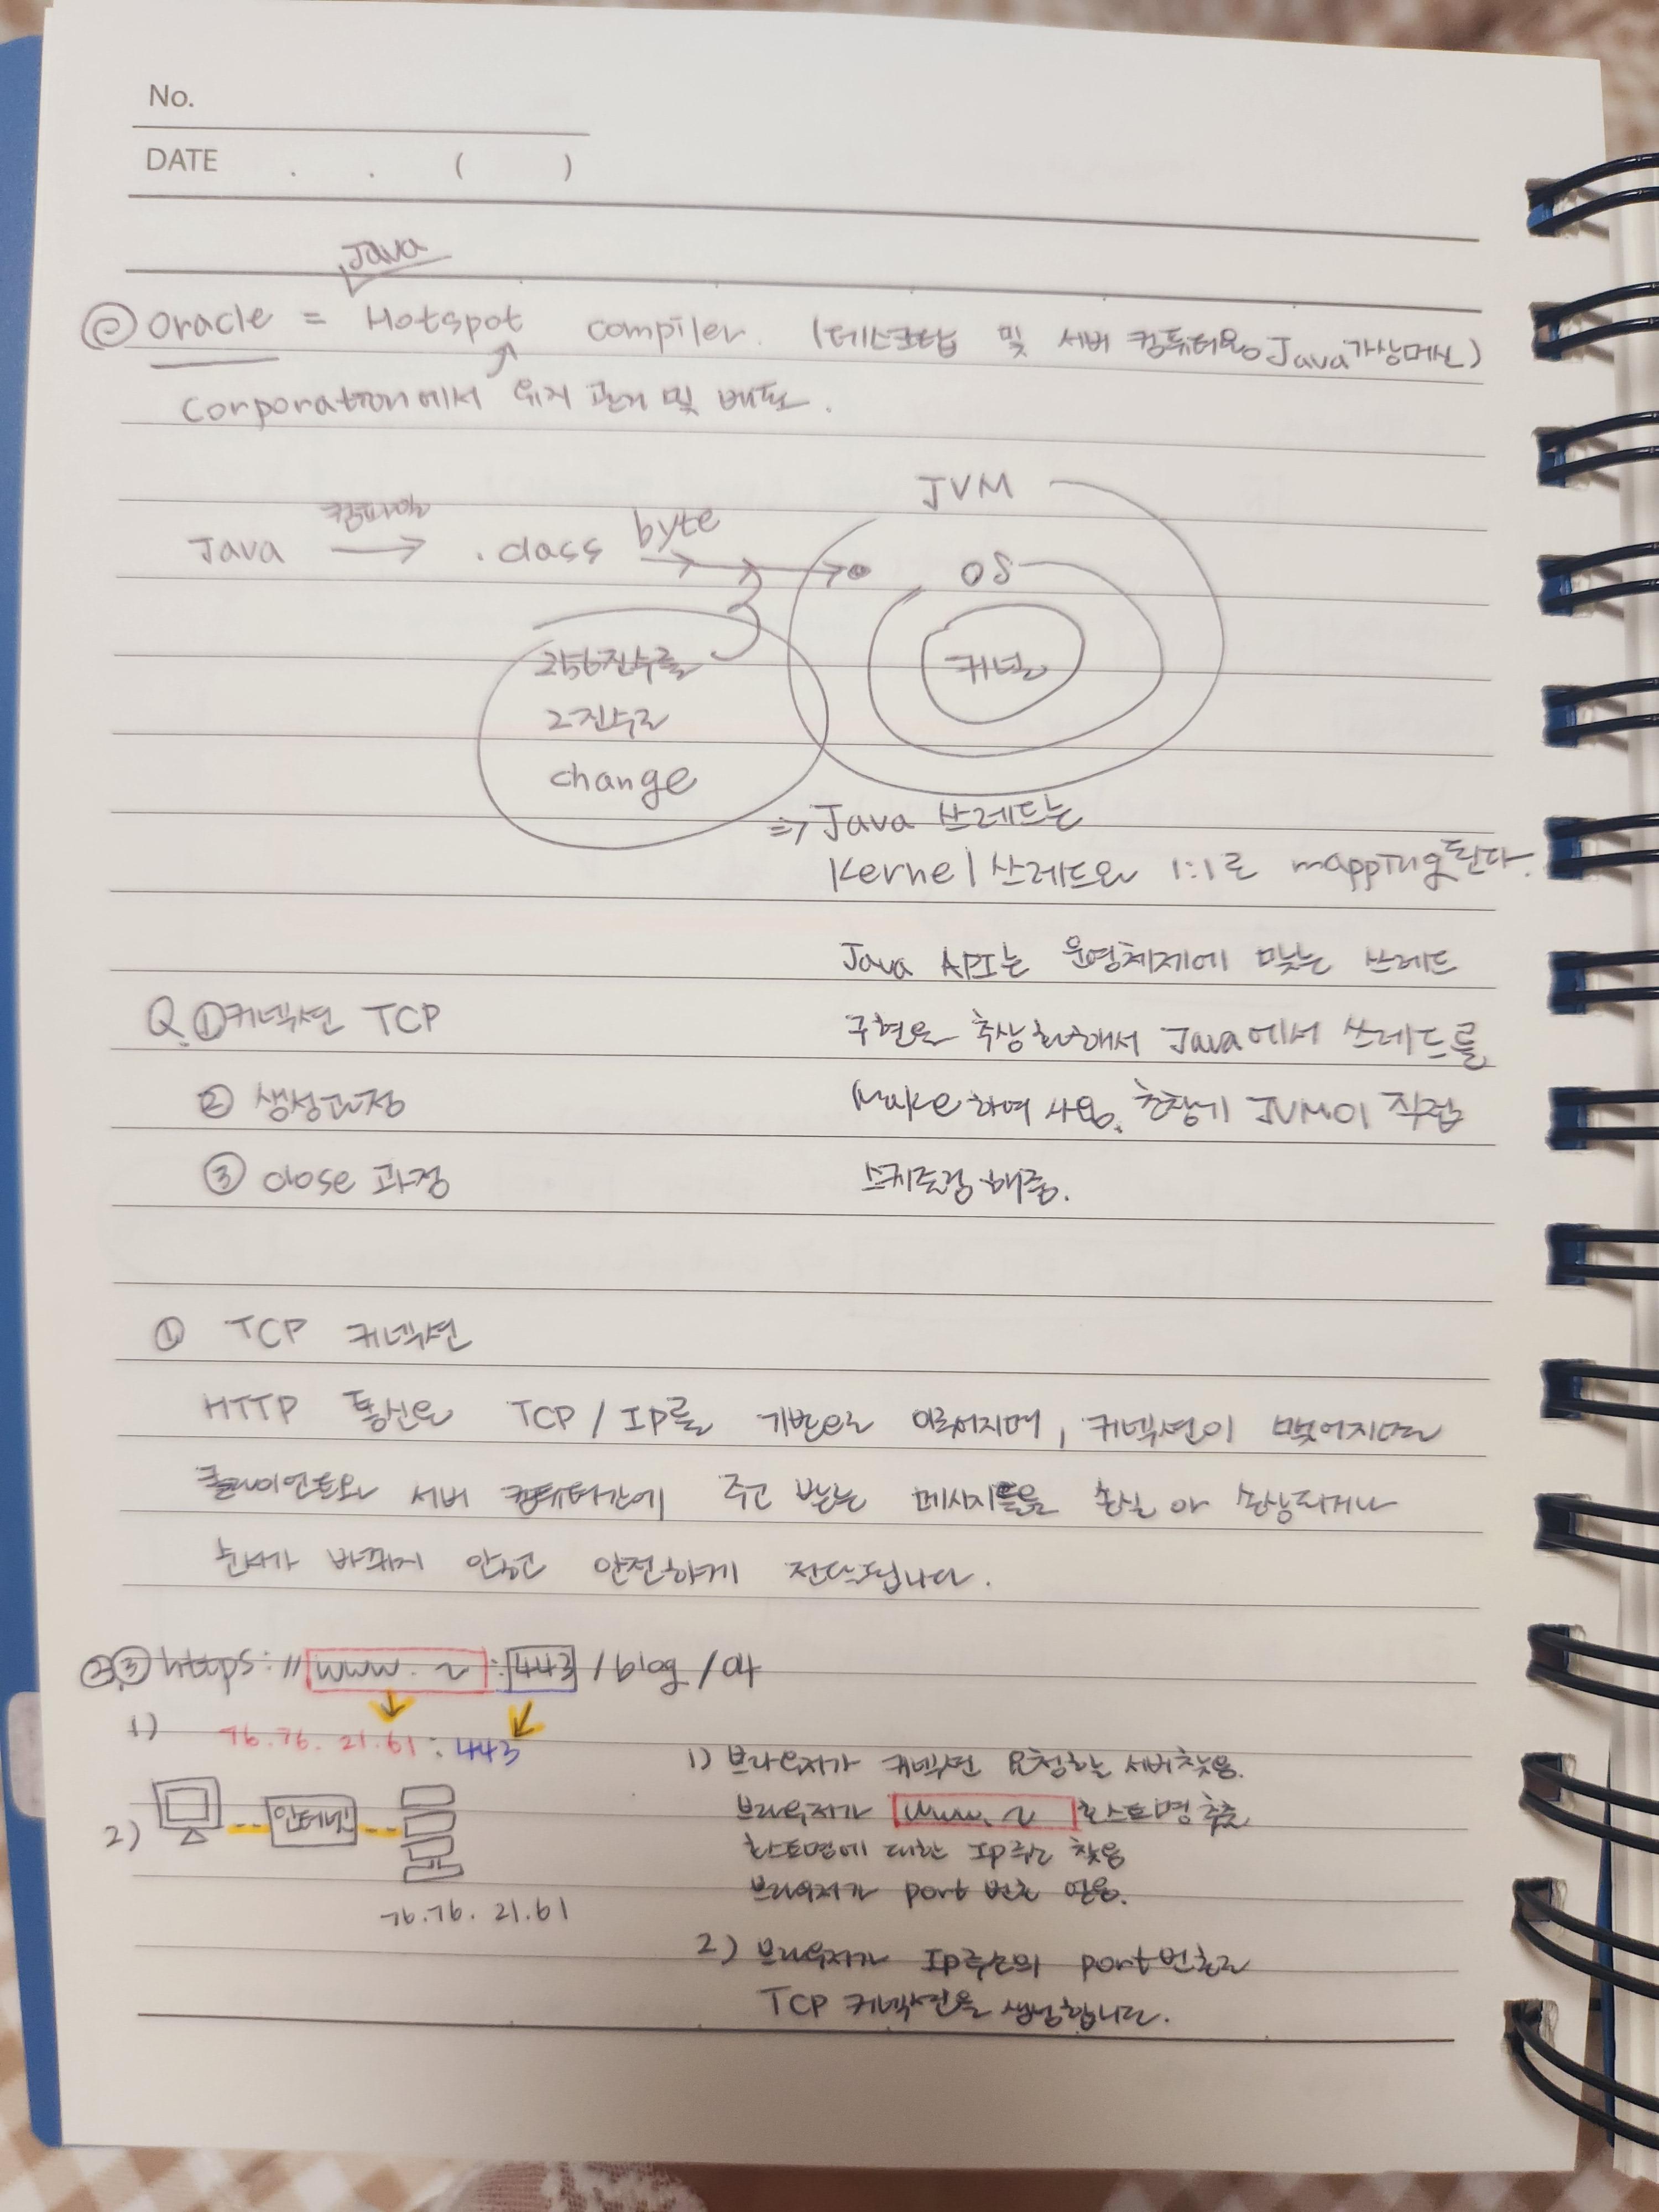 No.
DATE . . ( )
Java
ⓔ Oracle = Hotspot compiler. (데스크탑 및 서버 컴퓨터용 Java 가상머신)
Corporation에서 유지 관리 및 배포.
JVM
Java 컴파일 → .class byte
OS
커널
256진수를
2진수로
change
⇒ Java 쓰레드는
Kernel 쓰레드와 1:1로 mapping된다.
Java API는 운영체제에 맞는 쓰레드
구현을 추상화해서 Java에서 쓰레드를
Make하여 사용. 초창기 JVM이 직접
스케줄링 해줌.
Q. ① 커넥션 TCP
② 생성과정
③ close 과정
① TCP 커넥션
HTTP 통신은 TCP / IP를 기반으로 이루어지며, 커넥션이 맺어지면
클라이언트와 서버 컴퓨터간에 주고 받는 메시지들은 손실 or 손상되거나
순서가 바뀌지 않고 안전하게 전달됩니다.
②③ https://www. ~ :443 /blog /04
1) 76.76. 21.61 : 443
2) 인터넷
76.76. 21.61
1) 브라우저가 커넥션 요청하는 서버찾음.
브라우저가 www. ~ 호스트명 추출
호스트명에 대한 IP주소 찾음
브라우저가 port 번호 얻음.
2) 브라우저가 IP주소의 port번호로
TCP 커넥션을 생성합니다.